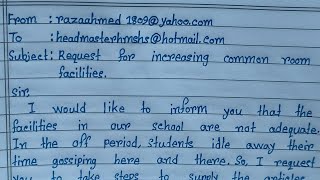 From : razaahmed1809@yahoo.com
To : headmasterhmshs@hotmail.com
Subject: Request for increasing common room
facilities.
Sir,
I would like to inform you that the
facilities in our school are not adequate.
In the off period, students idle away their
time gossiping here and there. So, I request
you to take steps to supply the articles